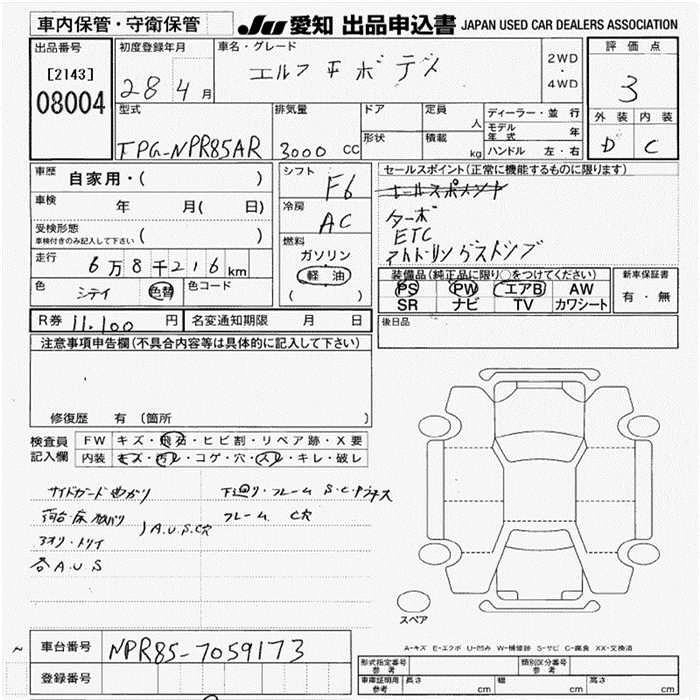 車内保管・守衛保管
JU 愛知 出品申込書 JAPAN USED CAR DEALERS ASSOCIATION
出品番号
[2143]
08004
初度登録年月
28 4 月
車名・グレード
エルフ平ボデー
2WD
・
4WD
評価点
3
外装 内装
D C
型式
TPG-NPR85AR
排気量
3000 CC
ドア
形状
定員
人
積載
kg
ディーラー・並行
モデル年式 年
ハンドル 左・右
車歴 自家用・( )
車検 年 月( 日)
受検形態
車検付きのみ記入して下さい ( )
走行 6万8千216km
色 シティ 色替 色コード
シフト F6
冷房 AC
燃料
ガソリン
軽油
( )
セールスポイント(正常に機能するものに限ります)
セールスポイント
ターボ
ETC
アイドリングストップ
装備品(純正品に限り○をつけてください)
PS PW エアB AW
SR ナビ TV カワシート
新車保証書
有・無
R券 11.100 円 名変通知期限 月 日
後日品
注意事項申告欄(不具合内容等は具体的に記入して下さい)
修復歴 有 (箇所 )
検査員記入欄
FW キズ・飛石・ヒビ割・リペア跡・X要
内装 キズ・汚レ・コゲ・穴・スレ・キレ・破レ
サイドガード曲がり
下廻り・フレーム S.C.
荷台・床
A.U.S.C穴
フレーム C穴
アオリ・トリイ
各A.U.S
スペア
A-キズ E-エクボ U-凹み W-補修跡 S-サビ C-腐食 XX-交換済
車台番号 NPR85-7059173
登録番号
形式指定番号 参考
類別区分番号 参考
車庫証明用 参考 長さ cm 幅 cm 高さ cm